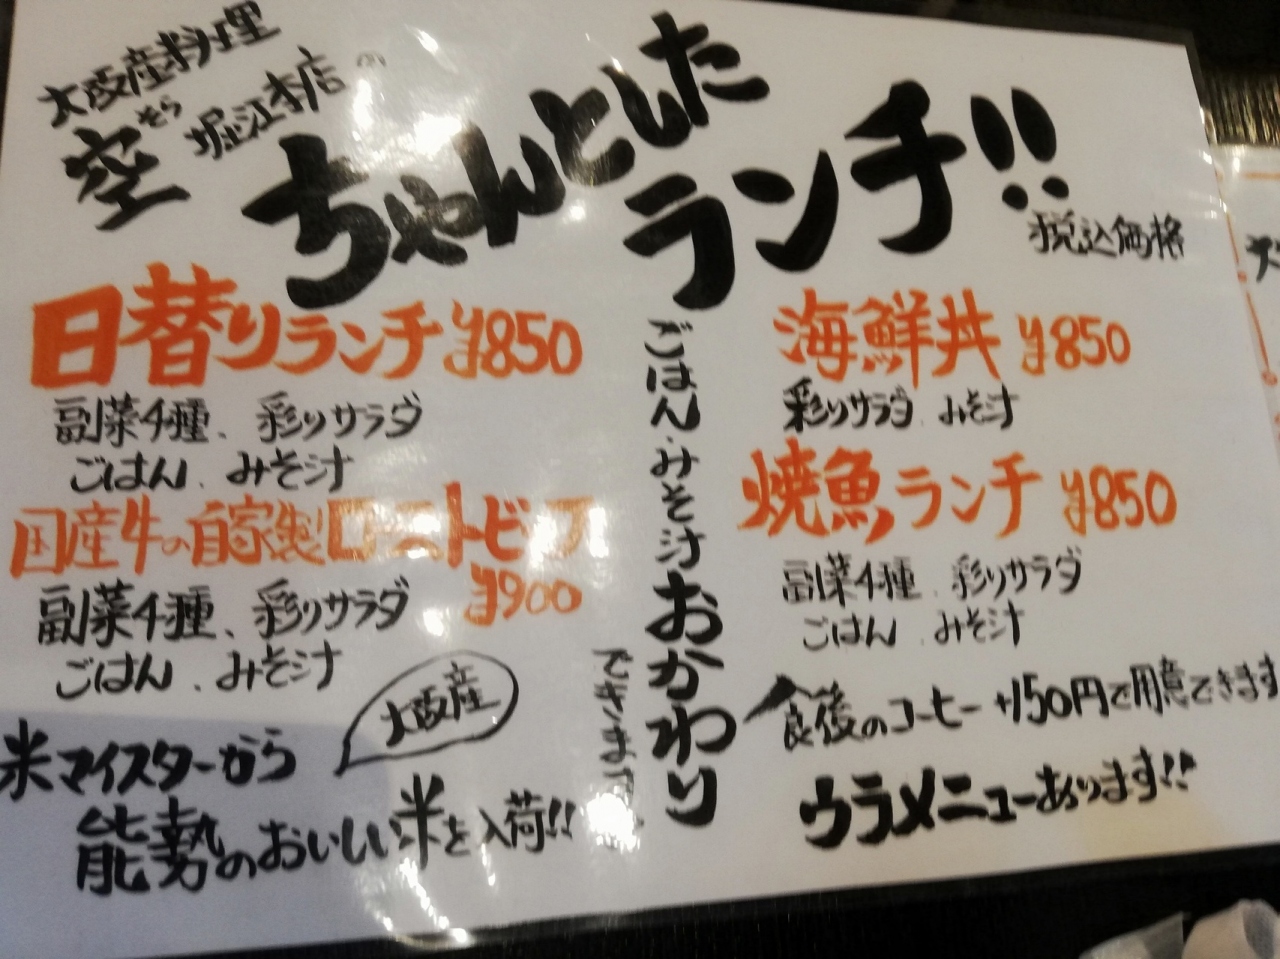 大阪産料理
空 そら 堀江本店 の
ちゃんとした
ランチ!!
税込価格
日替りランチ ¥850
副菜4種、彩りサラダ
ごはん、みそ汁
国産牛の自家製ローストビーフ
¥900
副菜4種、彩りサラダ
ごはん、みそ汁
大阪産
米マイスターから
能勢のおいしい米を入荷!!
ごはん・みそ汁おかわり
できます
海鮮丼 ¥850
彩りサラダ みそ汁
焼魚ランチ ¥850
副菜4種、彩りサラダ
ごはん、みそ汁
食後のコーヒー +150円で用意できます
ウラメニューあります!!